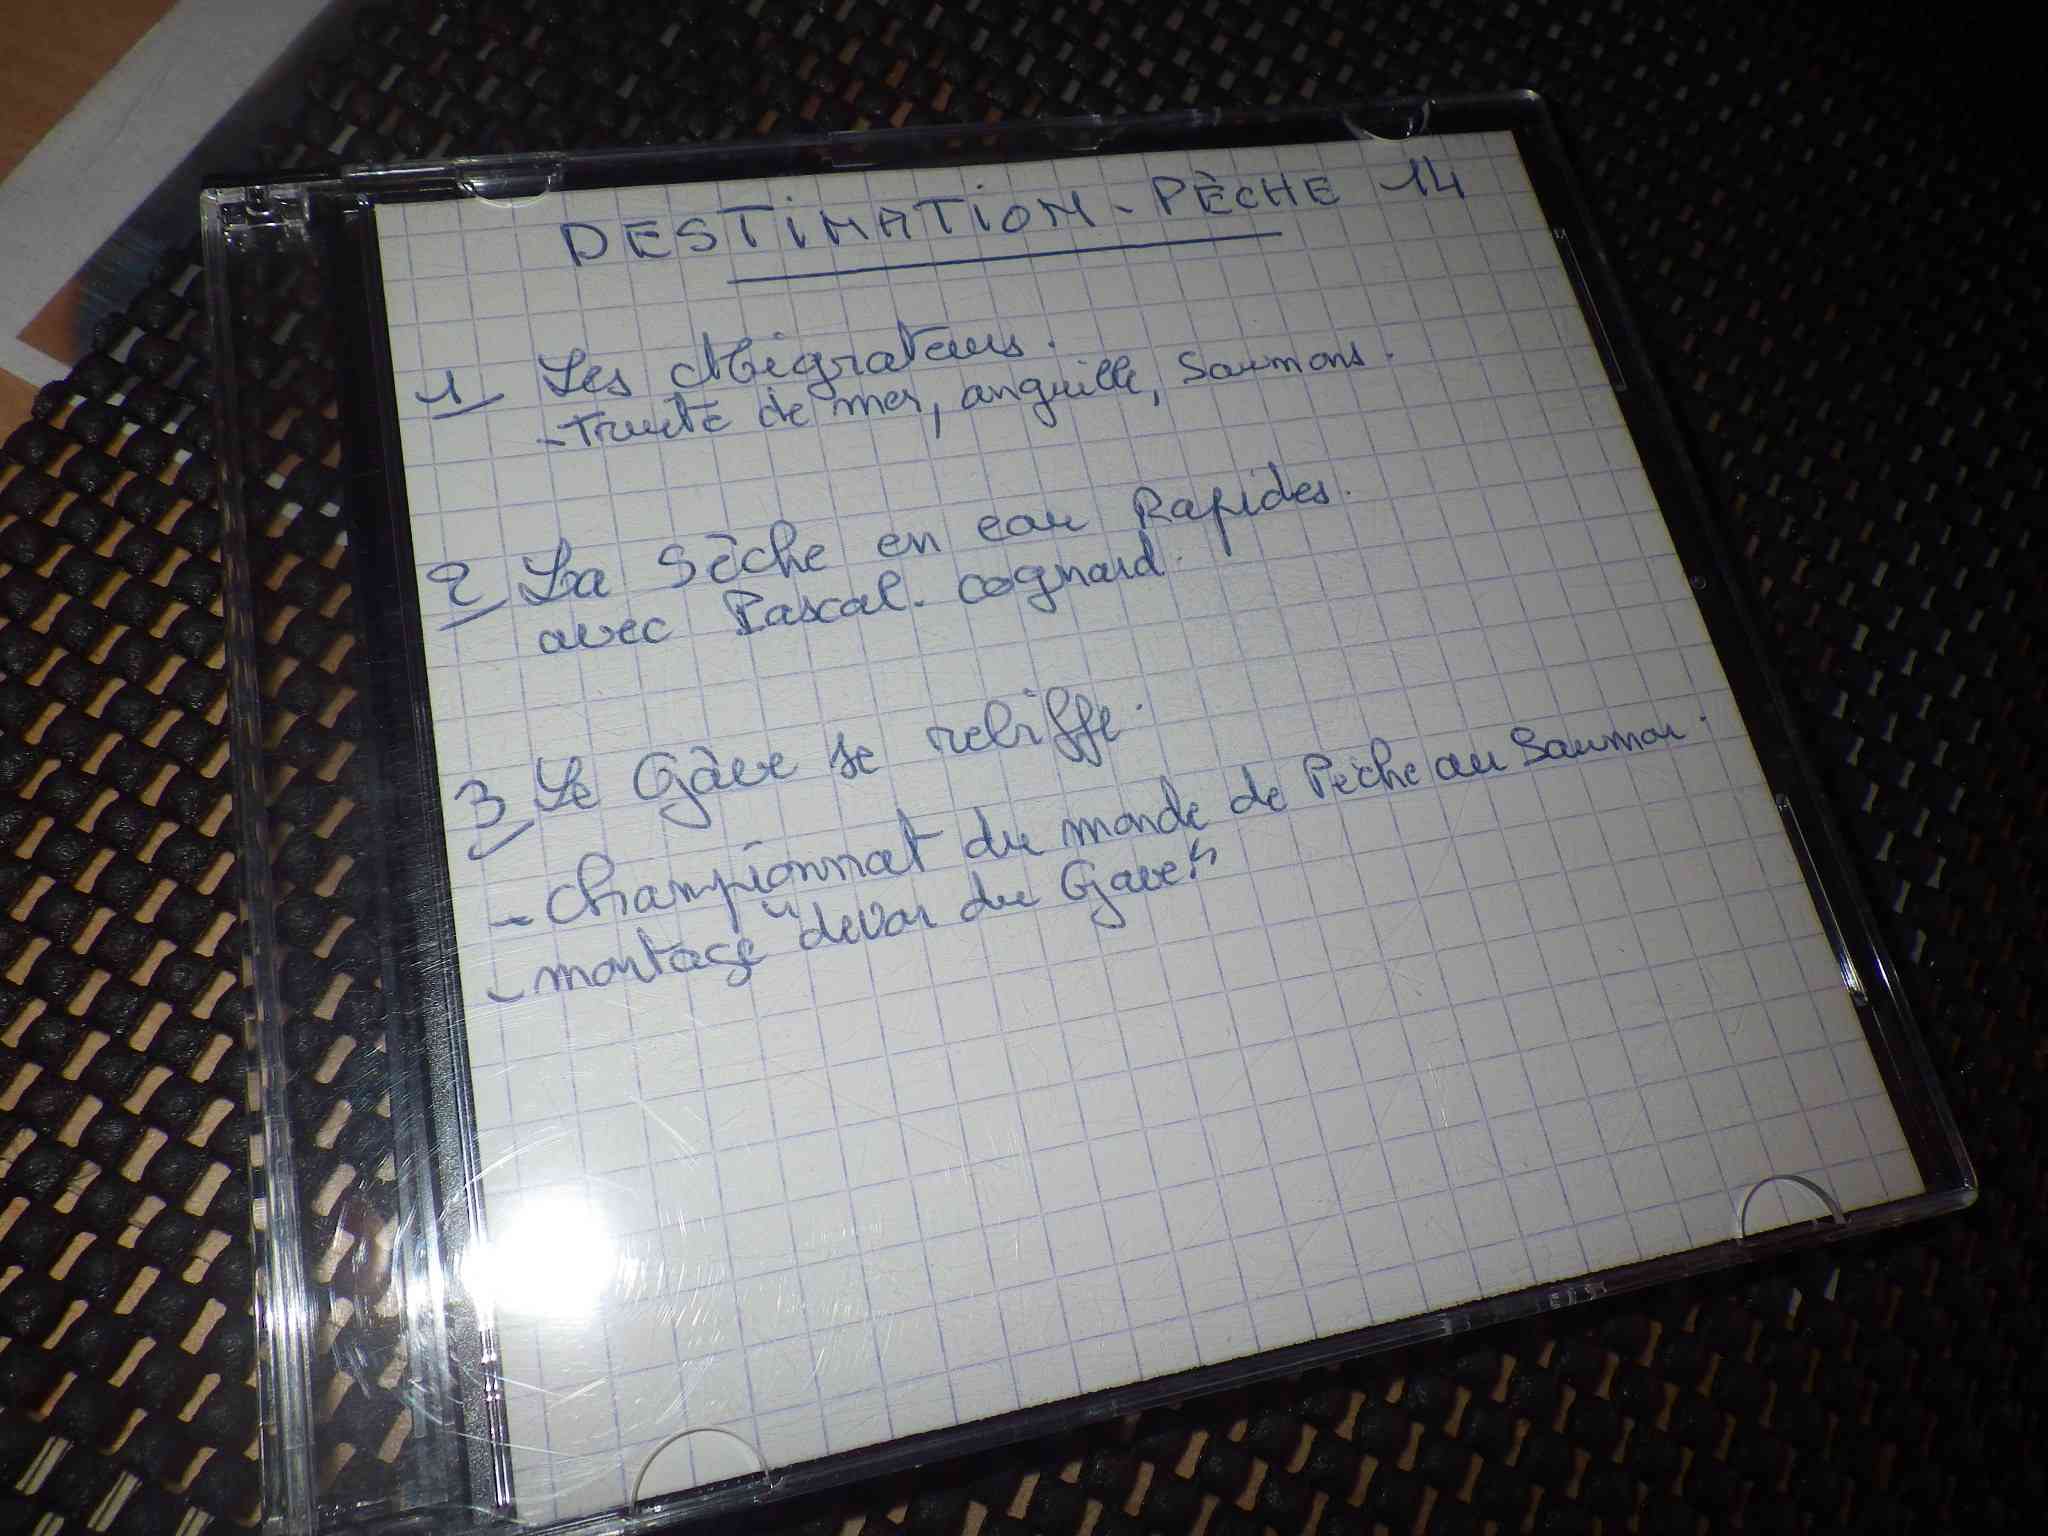 DESTINATION - PÊCHE 14
1 Les Migrateurs.
- Truite de mer, anguille, Saumons.
2 La Sèche en eau Rapides.
avec Pascal. Cognard.
3 Le Gave se rebiffe.
- Championnat du monde de Pêche au Saumon.
- montage "devon du Gave"